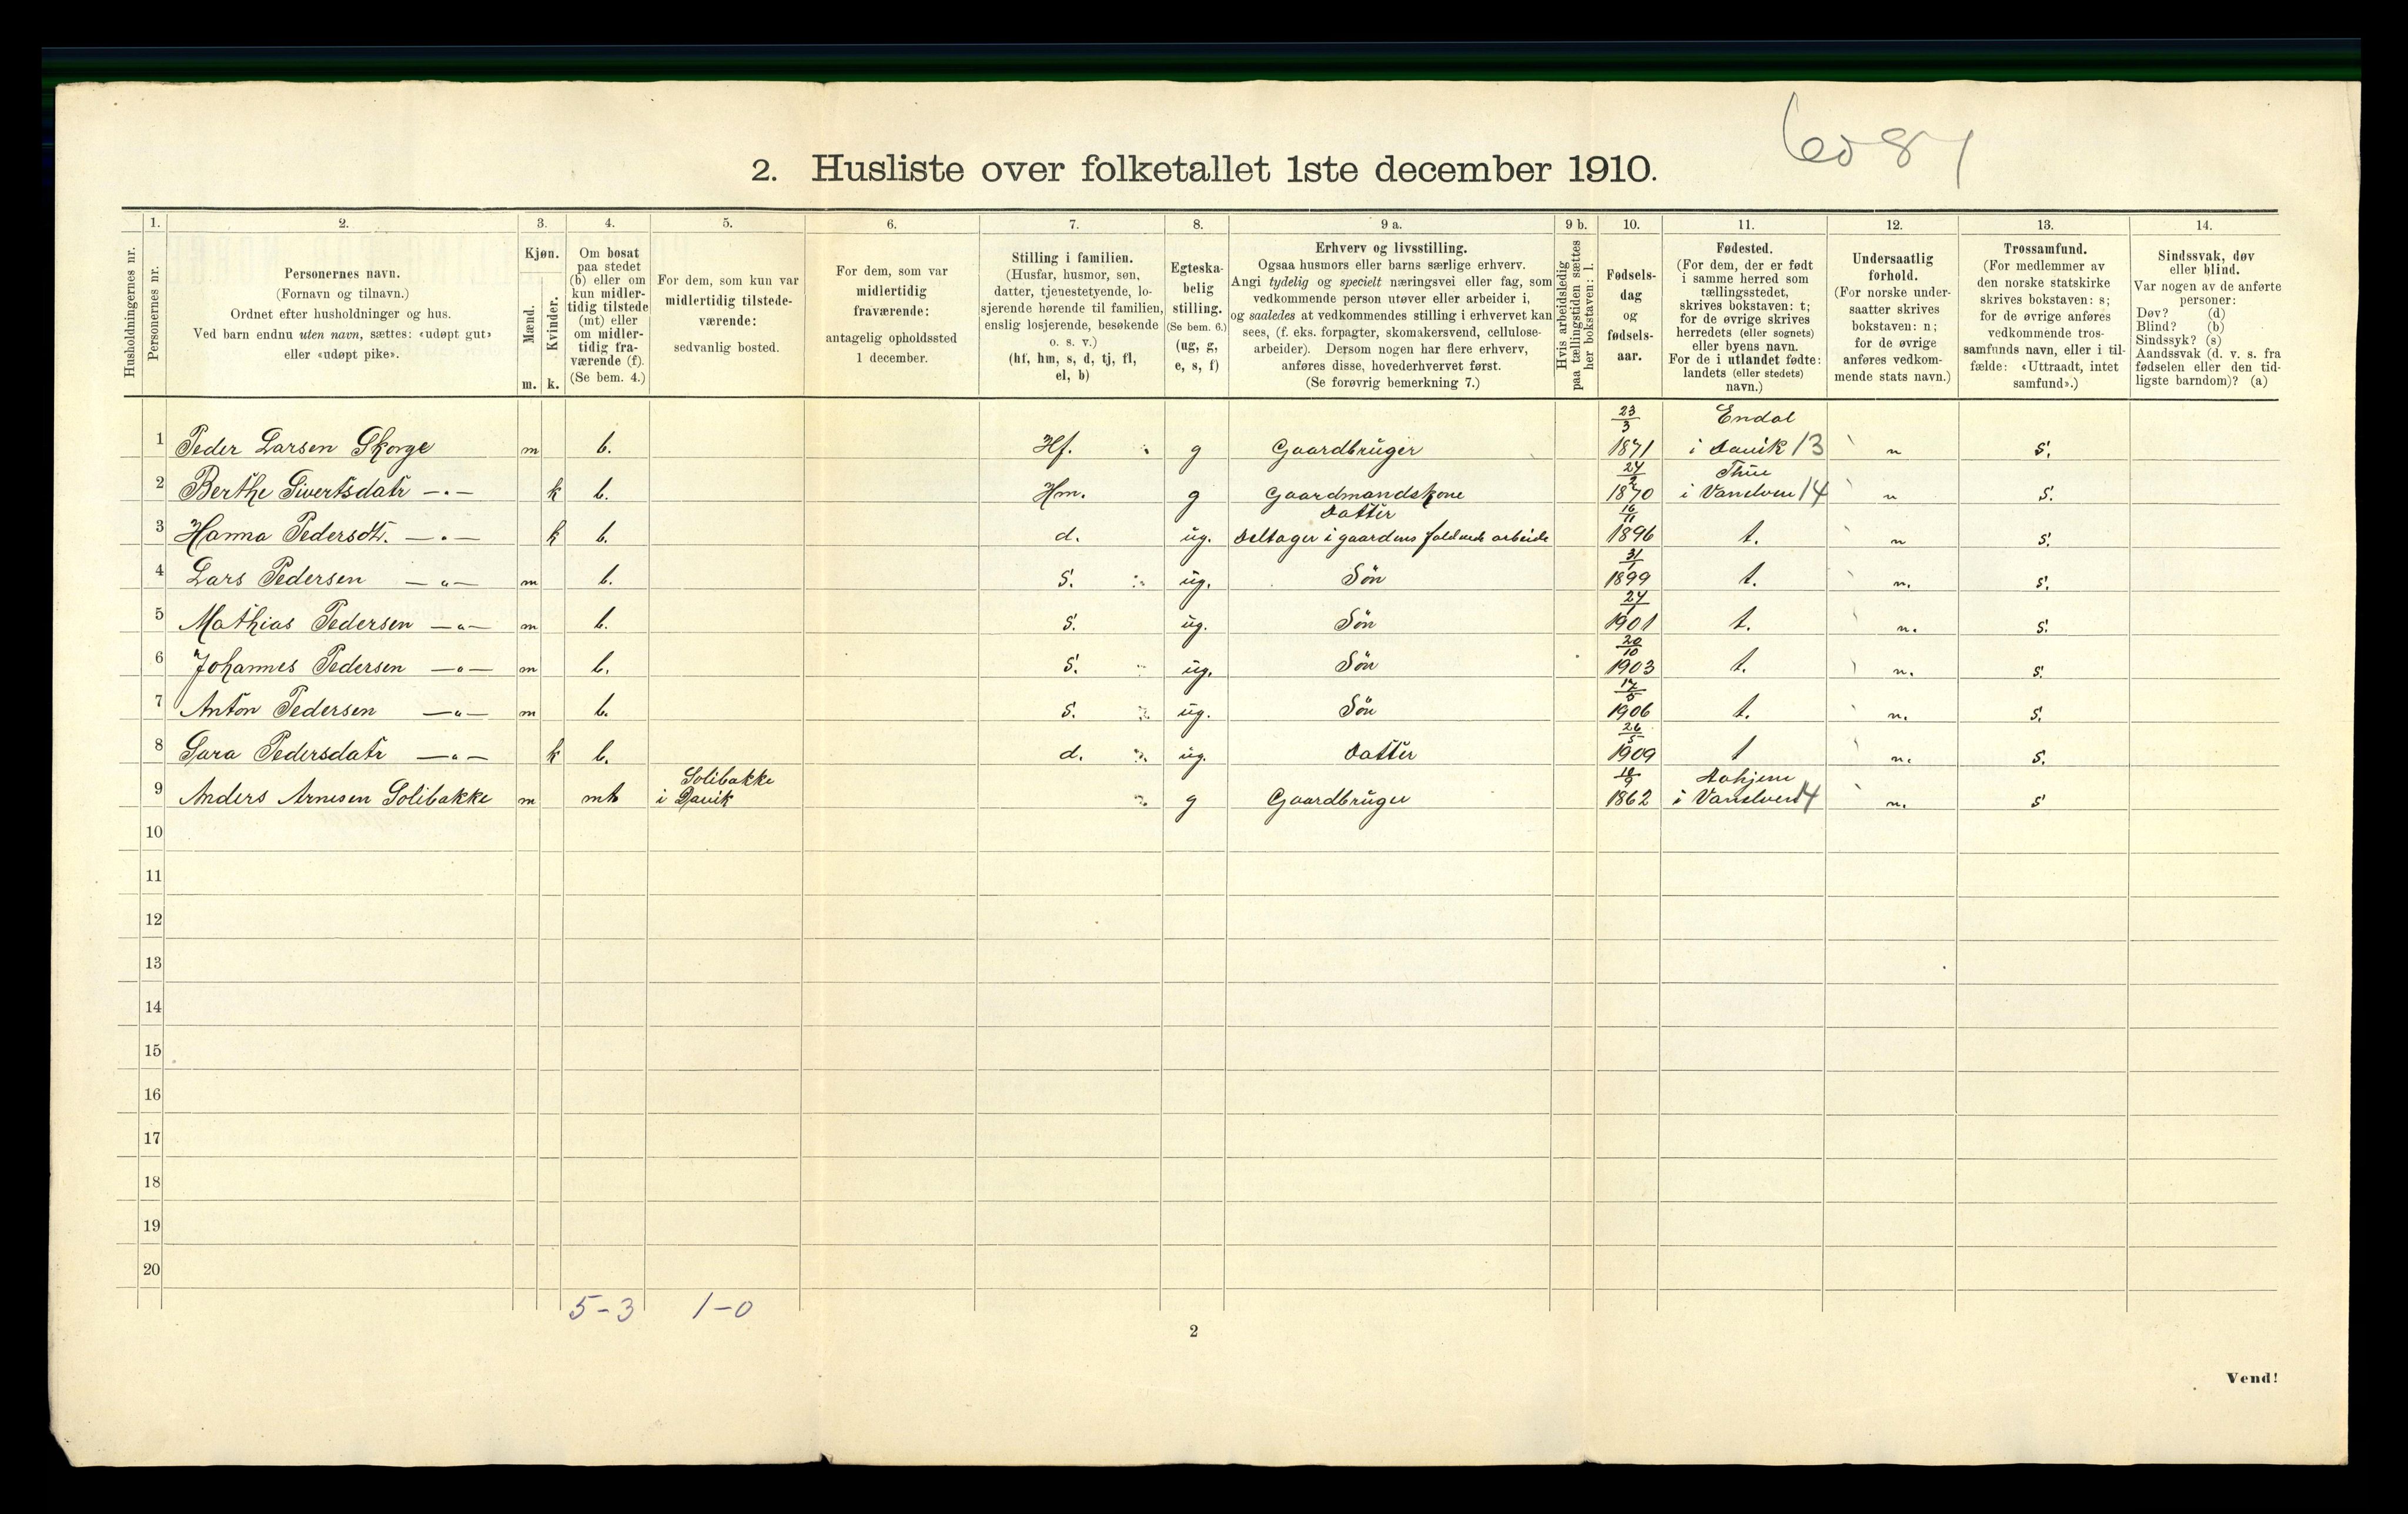 2. Husliste over folketallet 1ste december 1910.
1. 2. 3. 4. 5. 6. 7. 8. 9 a. 9 b. 10. 11. 12. 13. 14.
Husholdningernes nr.
Personernes nr.
Personernes navn.
(Fornavn og tilnavn.)
Ordnet efter husholdninger og hus.
Ved barn endnu uten navn, sættes: «udøpt gut»
eller «udøpt pike».
Kjøn.
Mænd.
Kvinder.
m. k.
Om bosat
paa stedet
(b) eller om
kun midler-
tidig tilstede
(mt) eller
om midler-
tidig fra-
værende (f).
(Se bem. 4.)
For dem, som kun var
midlertidig tilstede-
værende:
sedvanlig bosted.
For dem, som var
midlertidig
fraværende:
antagelig opholdssted
1 december.
Stilling i familien.
(Husfar, husmor, søn,
datter, tjenestetyende, lo-
sjerende hørende til familien,
enslig losjerende, besøkende
o. s. v.)
(hf, hm, s, d, tj, fl,
el, b)
Egteska-
belig
stilling.
(Se bem. 6.)
(ug, g,
e, s, f)
Erhverv og livsstilling.
Ogsaa husmors eller barns særlige erhverv.
Angi tydelig og specielt næringsvei eller fag, som
vedkommende person utøver eller arbeider i,
og saaledes at vedkommendes stilling i erhvervet kan
sees, (f. eks. forpagter, skomakersvend, cellulose-
arbeider). Dersom nogen har flere erhverv,
anføres disse, hovederhvervet først.
(Se forøvrig bemerkning 7.)
Hvis arbeidsledig
paa tællingstiden sættes
her bokstaven: l.
Fødsels-
dag
og
fødsels-
aar.
Fødested.
(For dem, der er født
i samme herred som
tællingsstedet,
skrives bokstaven: t;
for de øvrige skrives
herredets (eller sognets)
eller byens navn.
For de i utlandet fødte:
landets (eller stedets)
navn.)
Undersaatlig
forhold.
(For norske under-
saatter skrives
bokstaven: n;
for de øvrige
anføres vedkom-
mende stats navn.)
Trossamfund.
(For medlemmer av
den norske statskirke
skrives bokstaven: s;
for de øvrige anføres
vedkommende tros-
samfunds navn, eller i til-
fælde: «Uttraadt, intet
samfund».)
Sindssvak, døv
eller blind.
Var nogen av de anførte
personer:
Døv? (d)
Blind? (b)
Sindssyk? (s)
Aandssvak (d. v. s. fra
fødselen eller den tid-
ligste barndom)? (a)
23/3 Endal
1 Peder Larsen Skorge m b. Hf. g Gaardbruger 1871 i Davik 13 n s.
24/2
2 Berthe Sivertsdatr —.— k b. Hm. g Gaardmandskone 1870 i Vanelven 14 n s.
Datter 16/11
3 Hanna Pedersdt. —.— k b. d. ug. Deltager i gaardens arbeide 1896 t. n s.
31/1
4 Lars Pedersen —„— m b. s. ug. Sön 1899 t. n. s.
5 Mathias Pedersen —„— m b. s. ug. Sön 1901 t. n. s.
20/10
6 Johannes Pedersen —„— m b. s. ug. Sön 1903 t. n. s.
17/5
7 Anton Pedersen —„— m b. s. ug. Sön 1906 t. n. s.
26/5
8 Sara Pedersdatr —„— k b. d. ug. Datter 1909 t n. s.
Solibakke 18/9
9 Anders Arnesen Solibakke m mt i Davik g Gaardbruger 1862 i Vanelven 14 n. s
10
11
12
13
14
15
16
17
18
19
20
5-3 1-0
2
Vend!